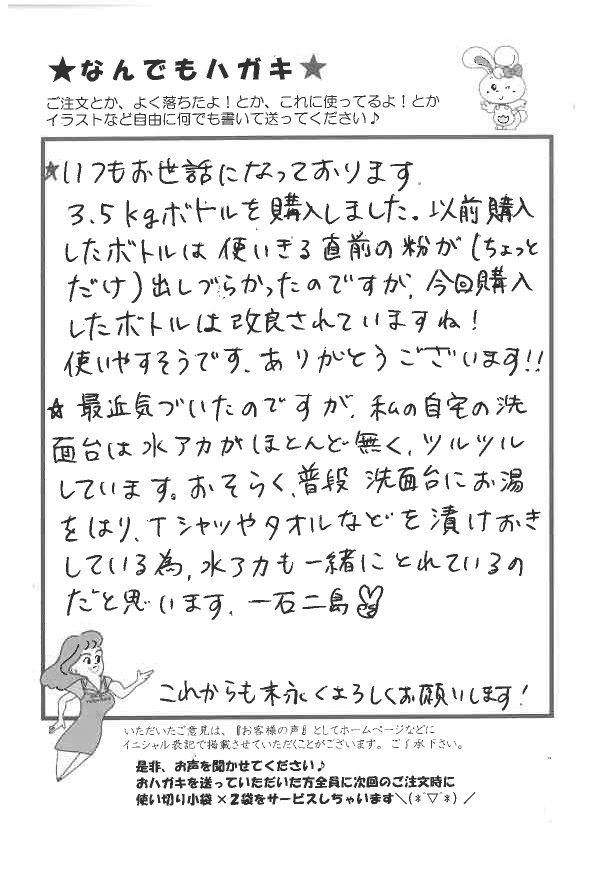 ★なんでもハガキ★
ご注文とか、よく落ちたよ！とか、これに使ってるよ！とか
イラストなど自由に何でも書いて送ってください♪
☆いつもお世話になっております。
3.5kgボトルを購入しました。以前購入
したボトルは使いきる直前の粉が(ちょっと
だけ)出しづらかったのですが、今回購入
したボトルは改良されていますね！
使いやすそうです、ありがとうございます!!
☆最近気づいたのですが、私の自宅の洗
面台は水アカがほとんど無く、ツルツル
しています。おそらく、普段 洗面台にお湯
をはり、Tシャツやタオルなどを漬けおき
している為、水アカも一緒にとれているの
だと思います、一石二鳥
これからも末永くよろしくお願いします！
いただいたご意見は、『お客様の声』としてホームページなどに
イニシャル表記で掲載させていただくことがございます。ご了承下さい。
是非、お声を聞かせてください♪
おハガキを送っていただいた方全員に次回のご注文時に
使い切り小袋×2袋をサービスしちゃいます＼(*^▽^*)／